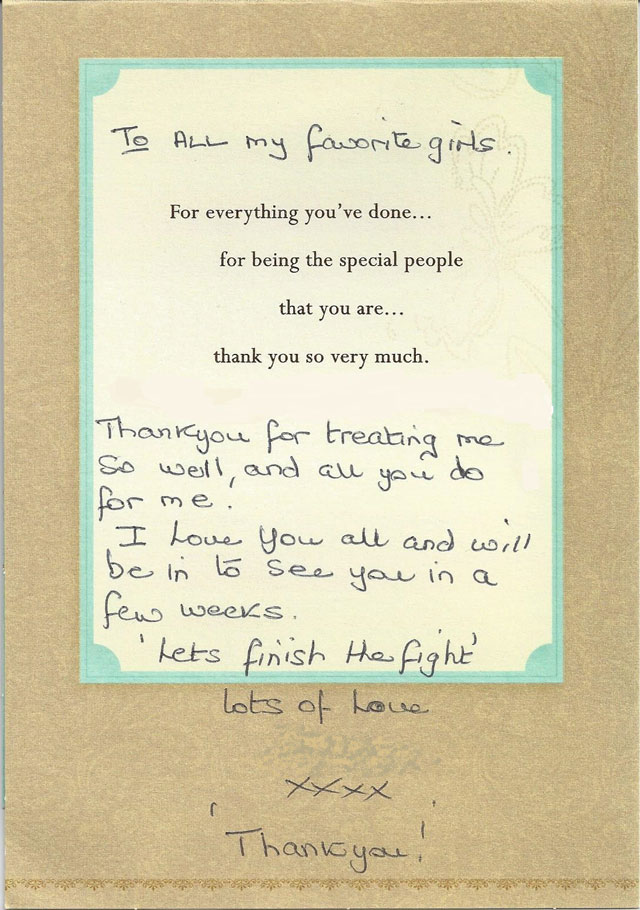 To ALL my favorite girls.
For everything you've done...
for being the special people
that you are...
thank you so very much.
Thankyou for treating me
So well, and all you do
for me.
I Love You all and will
be in to See you in a
few weeks.
'Lets finish the fight'
Lots of Love
xxxx
'Thankyou!'